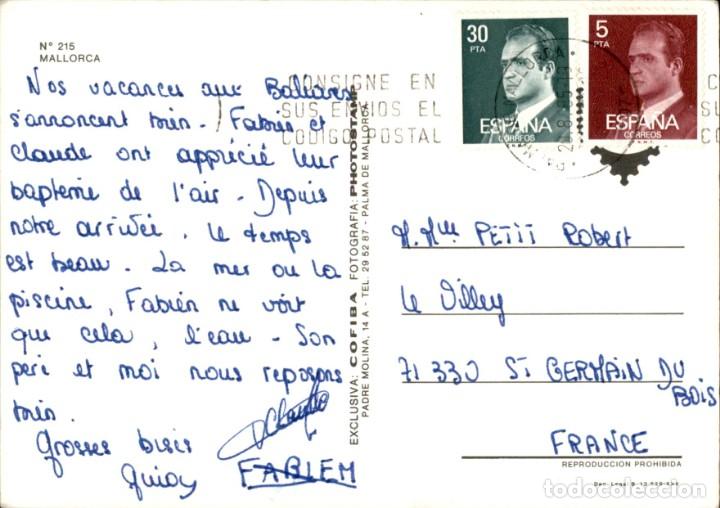 Nº 215
MALLORCA
Nos vacances aux Baléares
s'annoncent bien. Fabien et
claude ont apprécié leur
bapteme de l'air. Depuis
notre arrivée, le temps
est beau. La mer ou la
piscine, Fabien ne voit
que cela, l'eau. Son
père et moi nous reposons
bien.
Grosses bises
FABIEM
EXCLUSIVA: COFIBA FOTOGRAFIA: PHOTOSTAMP
PADRE MOLINA, 14 A - TEL. 29 52 87 - PALMA DE MALLORCA
CONSIGNE EN
SUS ENVIOS EL
CODIGO POSTAL
30
PTA
ESPAÑA
CORREOS
5
PTA
ESPAÑA
CORREOS
M. Mme PETIT Robert
Le Villey
71 330 St GERMAIN DU
BOIS
FRANCE
REPRODUCCION PROHIBIDA
todocoleccion